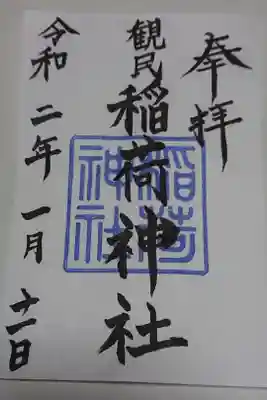 奉拝
観民稲荷神社
稲荷
神社
令和二年一月十一日